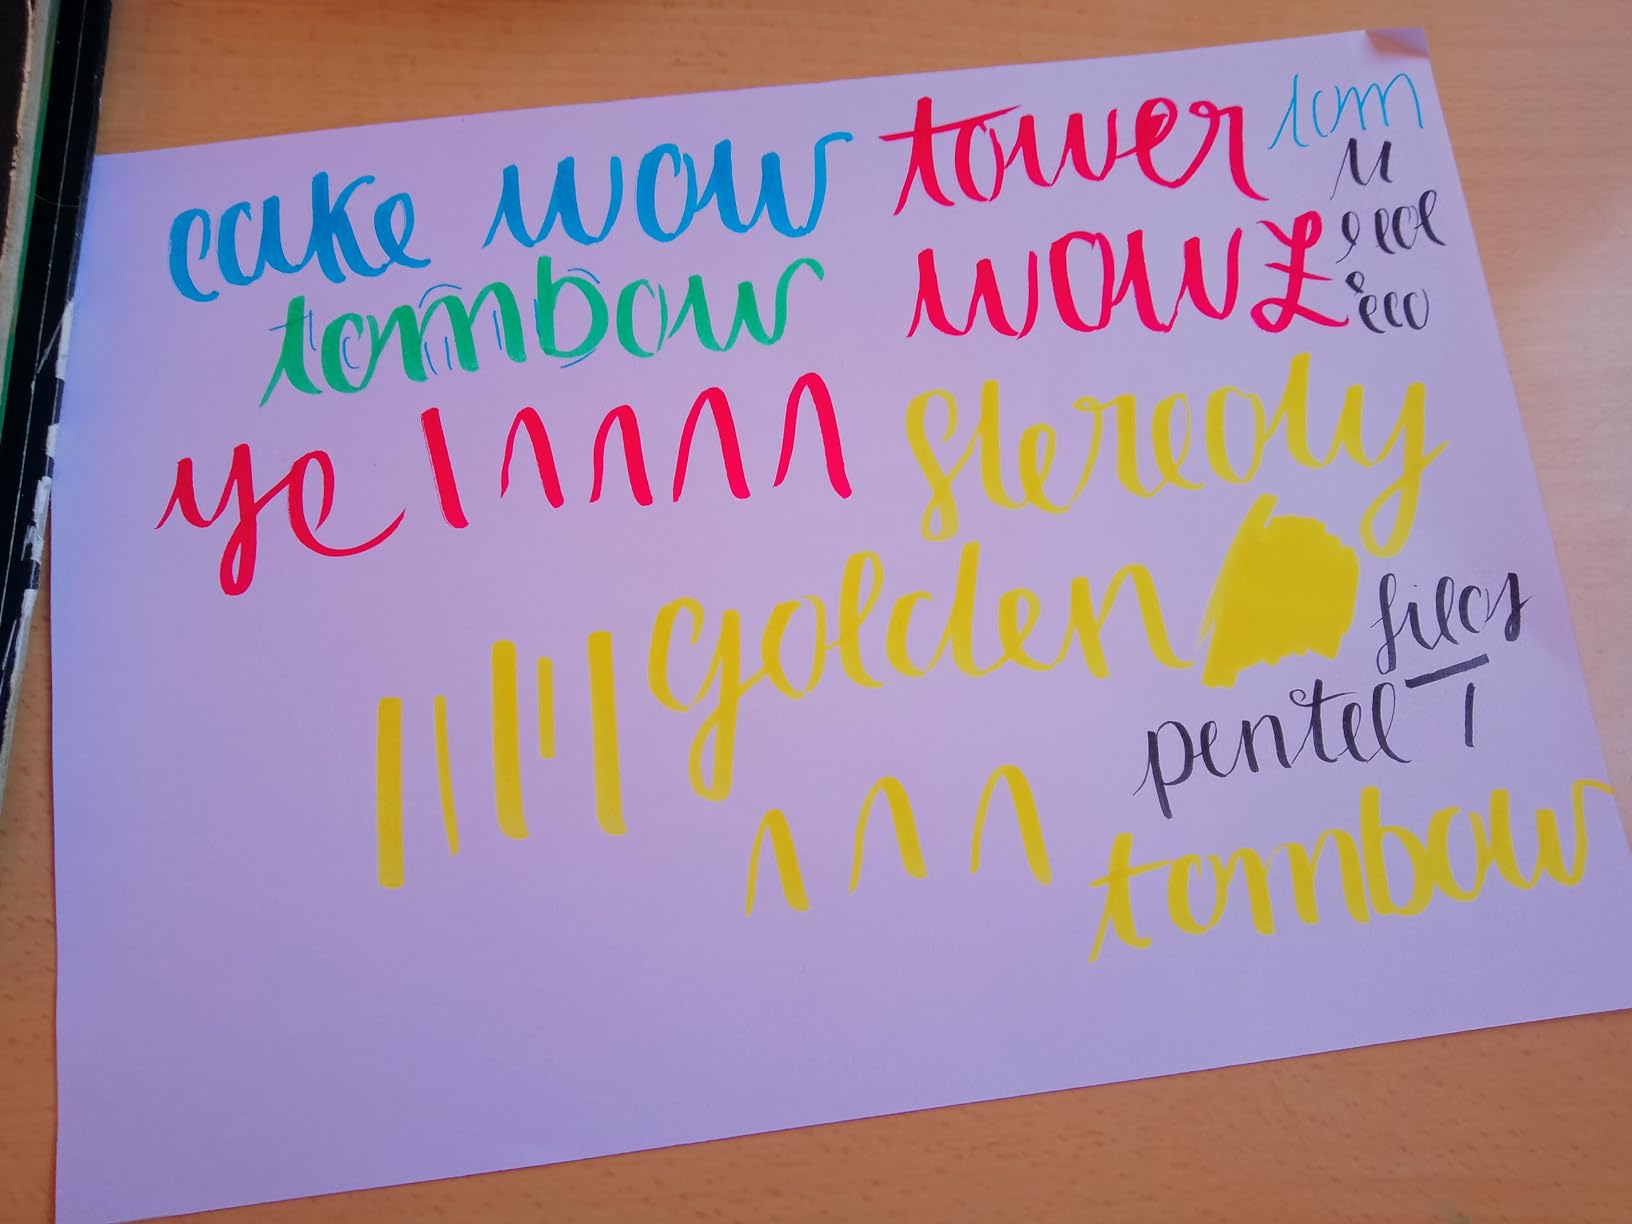 cake wow tower tom
tombow wow
ye stereoty
golden files
pentel T
tombow